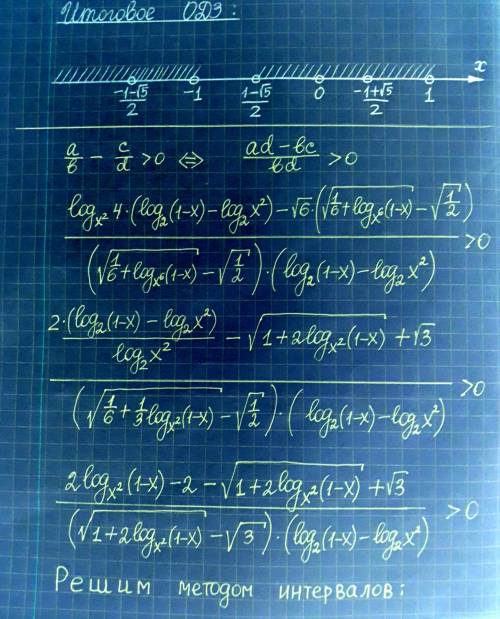 Итоговое ОДЗ:
x
(-1-√5)/2 -1 (1-√5)/2 0 (-1+√5)/2 1
a/b - c/d > 0 ⇔ (ad - bc)/(bd) > 0
(log_{x²} 4 · (log₂(1-x) - log₂x²) - √6 · (√(1/6 + log_{x⁶}(1-x)) - √(1/2))) / ((√(1/6 + log_{x⁶}(1-x)) - √(1/2)) · (log₂(1-x) - log₂x²)) > 0
(2·(log₂(1-x) - log₂x²)/log₂x² - √(1 + 2log_{x²}(1-x)) + √3) / ((√(1/6 + 1/3 log_{x²}(1-x)) - √(1/2)) · (log₂(1-x) - log₂x²)) > 0
(2log_{x²}(1-x) - 2 - √(1 + 2log_{x²}(1-x)) + √3) / ((√(1 + 2log_{x²}(1-x)) - √3) · (log₂(1-x) - log₂x²)) > 0
Решим методом интервалов: